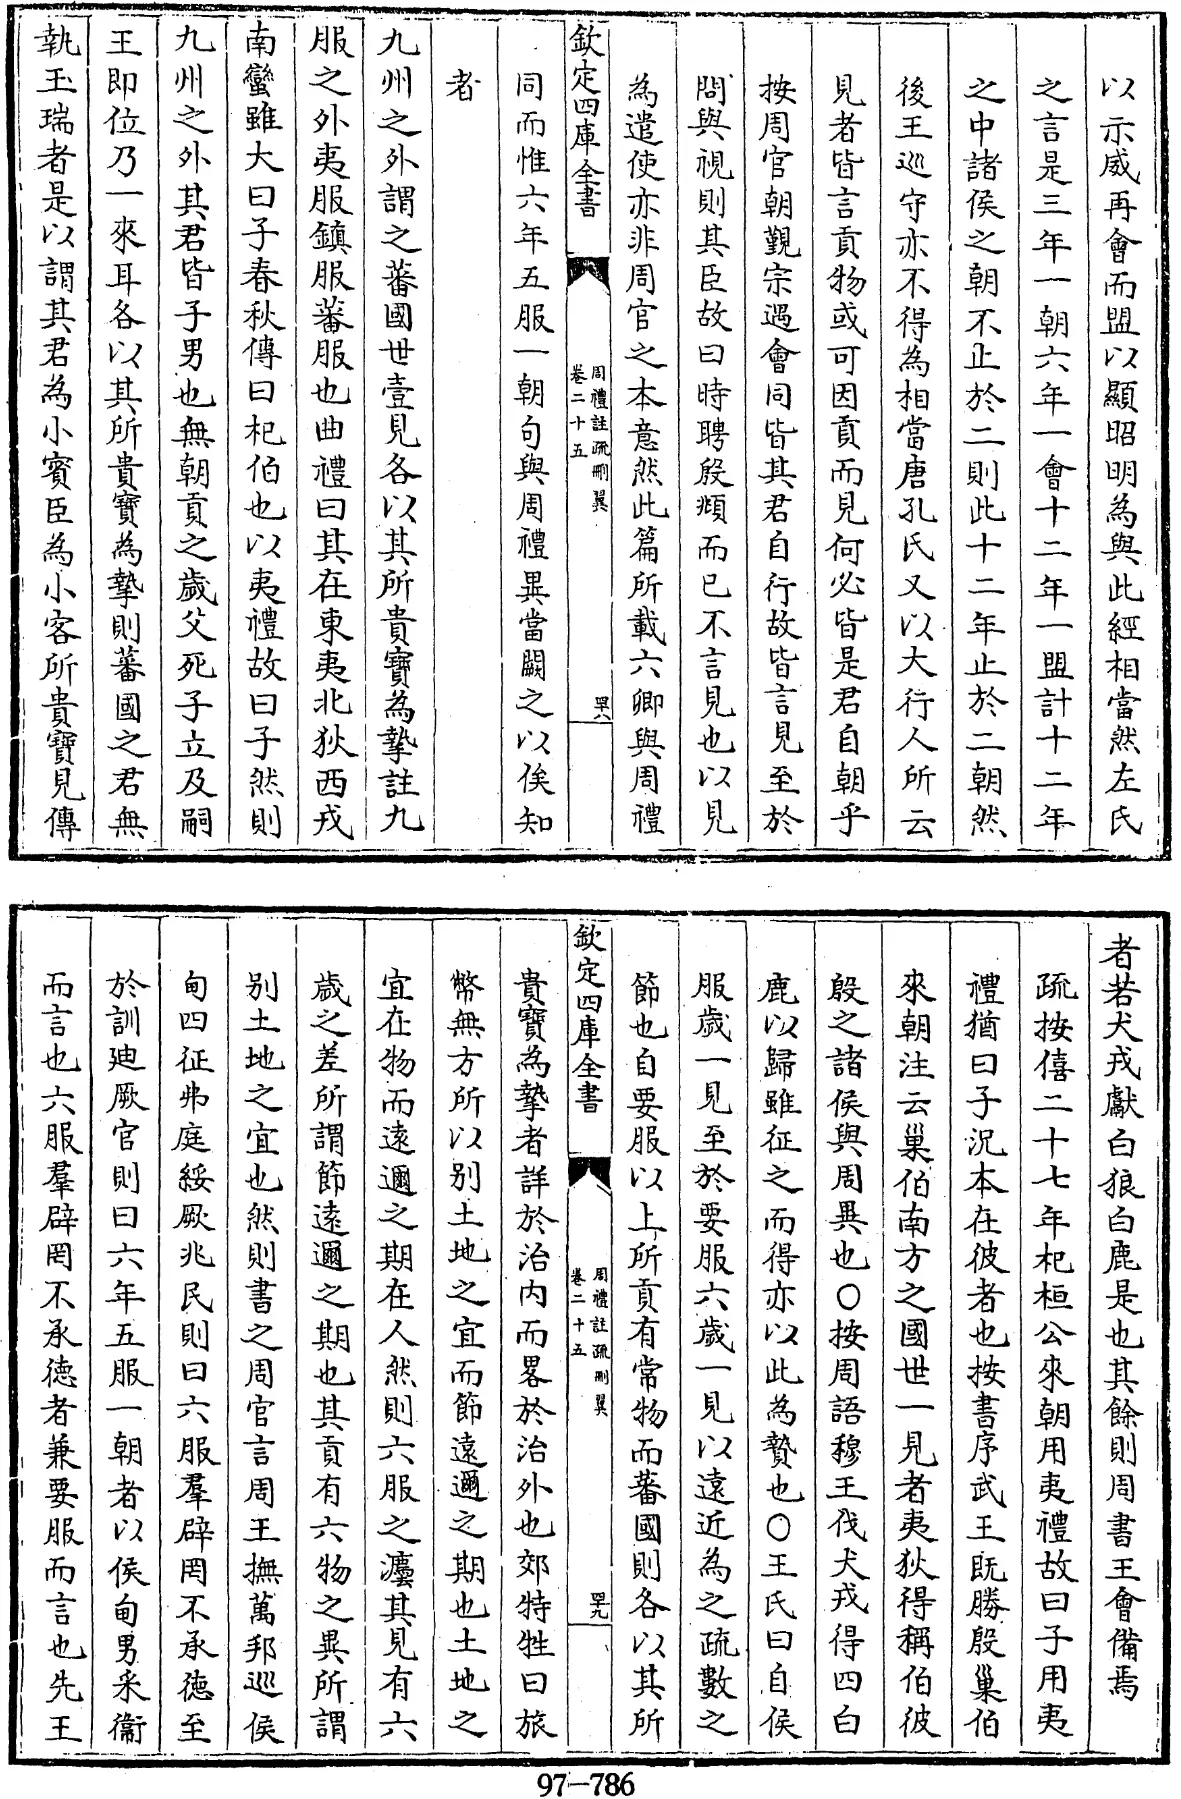 以示威再會而盟以顯昭明為與此經相當然左氏
之言是三年一朝六年一會十二年一盟計十二年
之中諸侯之朝不止於二則此十二年止於二朝然
後王巡守亦不得為相當唐孔氏又以大行人所云
見者皆言貢物或可因貢而見何必皆是君自朝乎
按周官朝覲宗遇會同皆其君自行故皆言見至於
問與視則其臣故曰時聘殷頫而已不言見也以見
為遣使亦非周官之本意然此篇所載六卿與周禮
欽定四庫全書
周禮註疏刪翼
卷二十五
罕八
同而惟六年五服一朝句與周禮異當闕之以俟知
者
九州之外謂之蕃國世壹見各以其所貴寶為摯註九
服之外夷服鎮服蕃服也曲禮曰其在東夷北狄西戎
南蠻雖大曰子春秋傳曰杞伯也以夷禮故曰子然則
九州之外其君皆子男也無朝貢之歲父死子立及嗣
王即位乃一來耳各以其所貴寶為摯則蕃國之君無
執玉瑞者是以謂其君為小賓臣為小客所貴寶見傳
者若犬戎獻白狼白鹿是也其餘則周書王會備焉
疏按僖二十七年杞桓公來朝用夷禮故曰子用夷
禮猶曰子況本在彼者也按書序武王既勝殷巢伯
來朝注云巢伯南方之國世一見者夷狄得稱伯彼
殷之諸侯與周異也○按周語穆王伐犬戎得四白
鹿以歸雖征之而得亦以此為贄也○王氏曰自侯
服歲一見至於要服六歲一見以遠近為之疏數之
節也自要服以上所貢有常物而蕃國則各以其所
欽定四庫全書
周禮註疏刪翼
卷二十五
罕九
貴寶為摯者詳於治内而畧於治外也郊特牲曰旅
幣無方所以别土地之宜而節遠邇之期也土地之
宜在物而遠邇之期在人然則六服之灋其見有六
歲之差所謂節遠邇之期也其貢有六物之異所謂
别土地之宜也然則書之周官言周王撫萬邦巡侯
甸四征弗庭綏厥兆民則曰六服羣辟罔不承德至
於訓廸厥官則曰六年五服一朝者以侯甸男采衞
而言也六服羣辟罔不承德者兼要服而言也先王
97-786